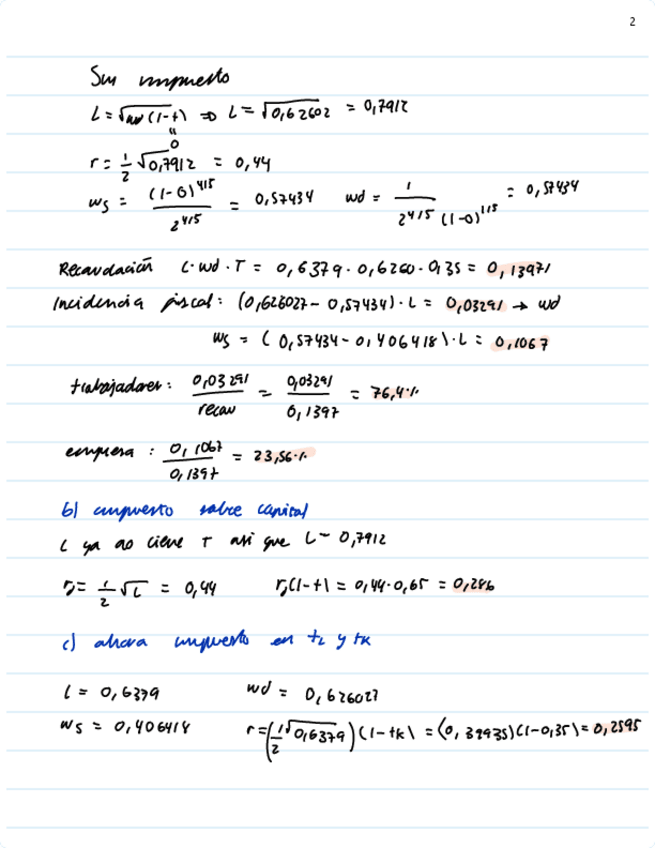 2
Sin impuesto
L = √w(1-t) ⇒ L = √0,62602 = 0,7912
"
0
r = 1/2 √0,7912 = 0,44
ws = (1-0)^4/5 / 2^4/5 = 0,57434 wd = 1 / 2^4/5 (1-0)^1/5 = 0,57434
Recaudación L·wd·T = 0,6379·0,6260·0,35 = 0,13971
Incidencia fiscal: (0,626027 - 0,57434)·L = 0,03291 → wd
ws = (0,57434 - 0,406418)·L = 0,1067
trabajadores: 0,03291 / recau = 0,03291 / 0,1397 = 76,4%
empresa: 0,1067 / 0,1397 = 23,56%
b) impuesto sobre capital
L ya no tiene T asi que L = 0,7912
r = 1/2 √L = 0,44 r(1-t) = 0,44·0,65 = 0,286
c) ahora impuesto en tL y tK
L = 0,6379 wd = 0,626027
ws = 0,406418 r = (1/2 √0,6379)(1-tK) = (0,39935)(1-0,35) = 0,2595